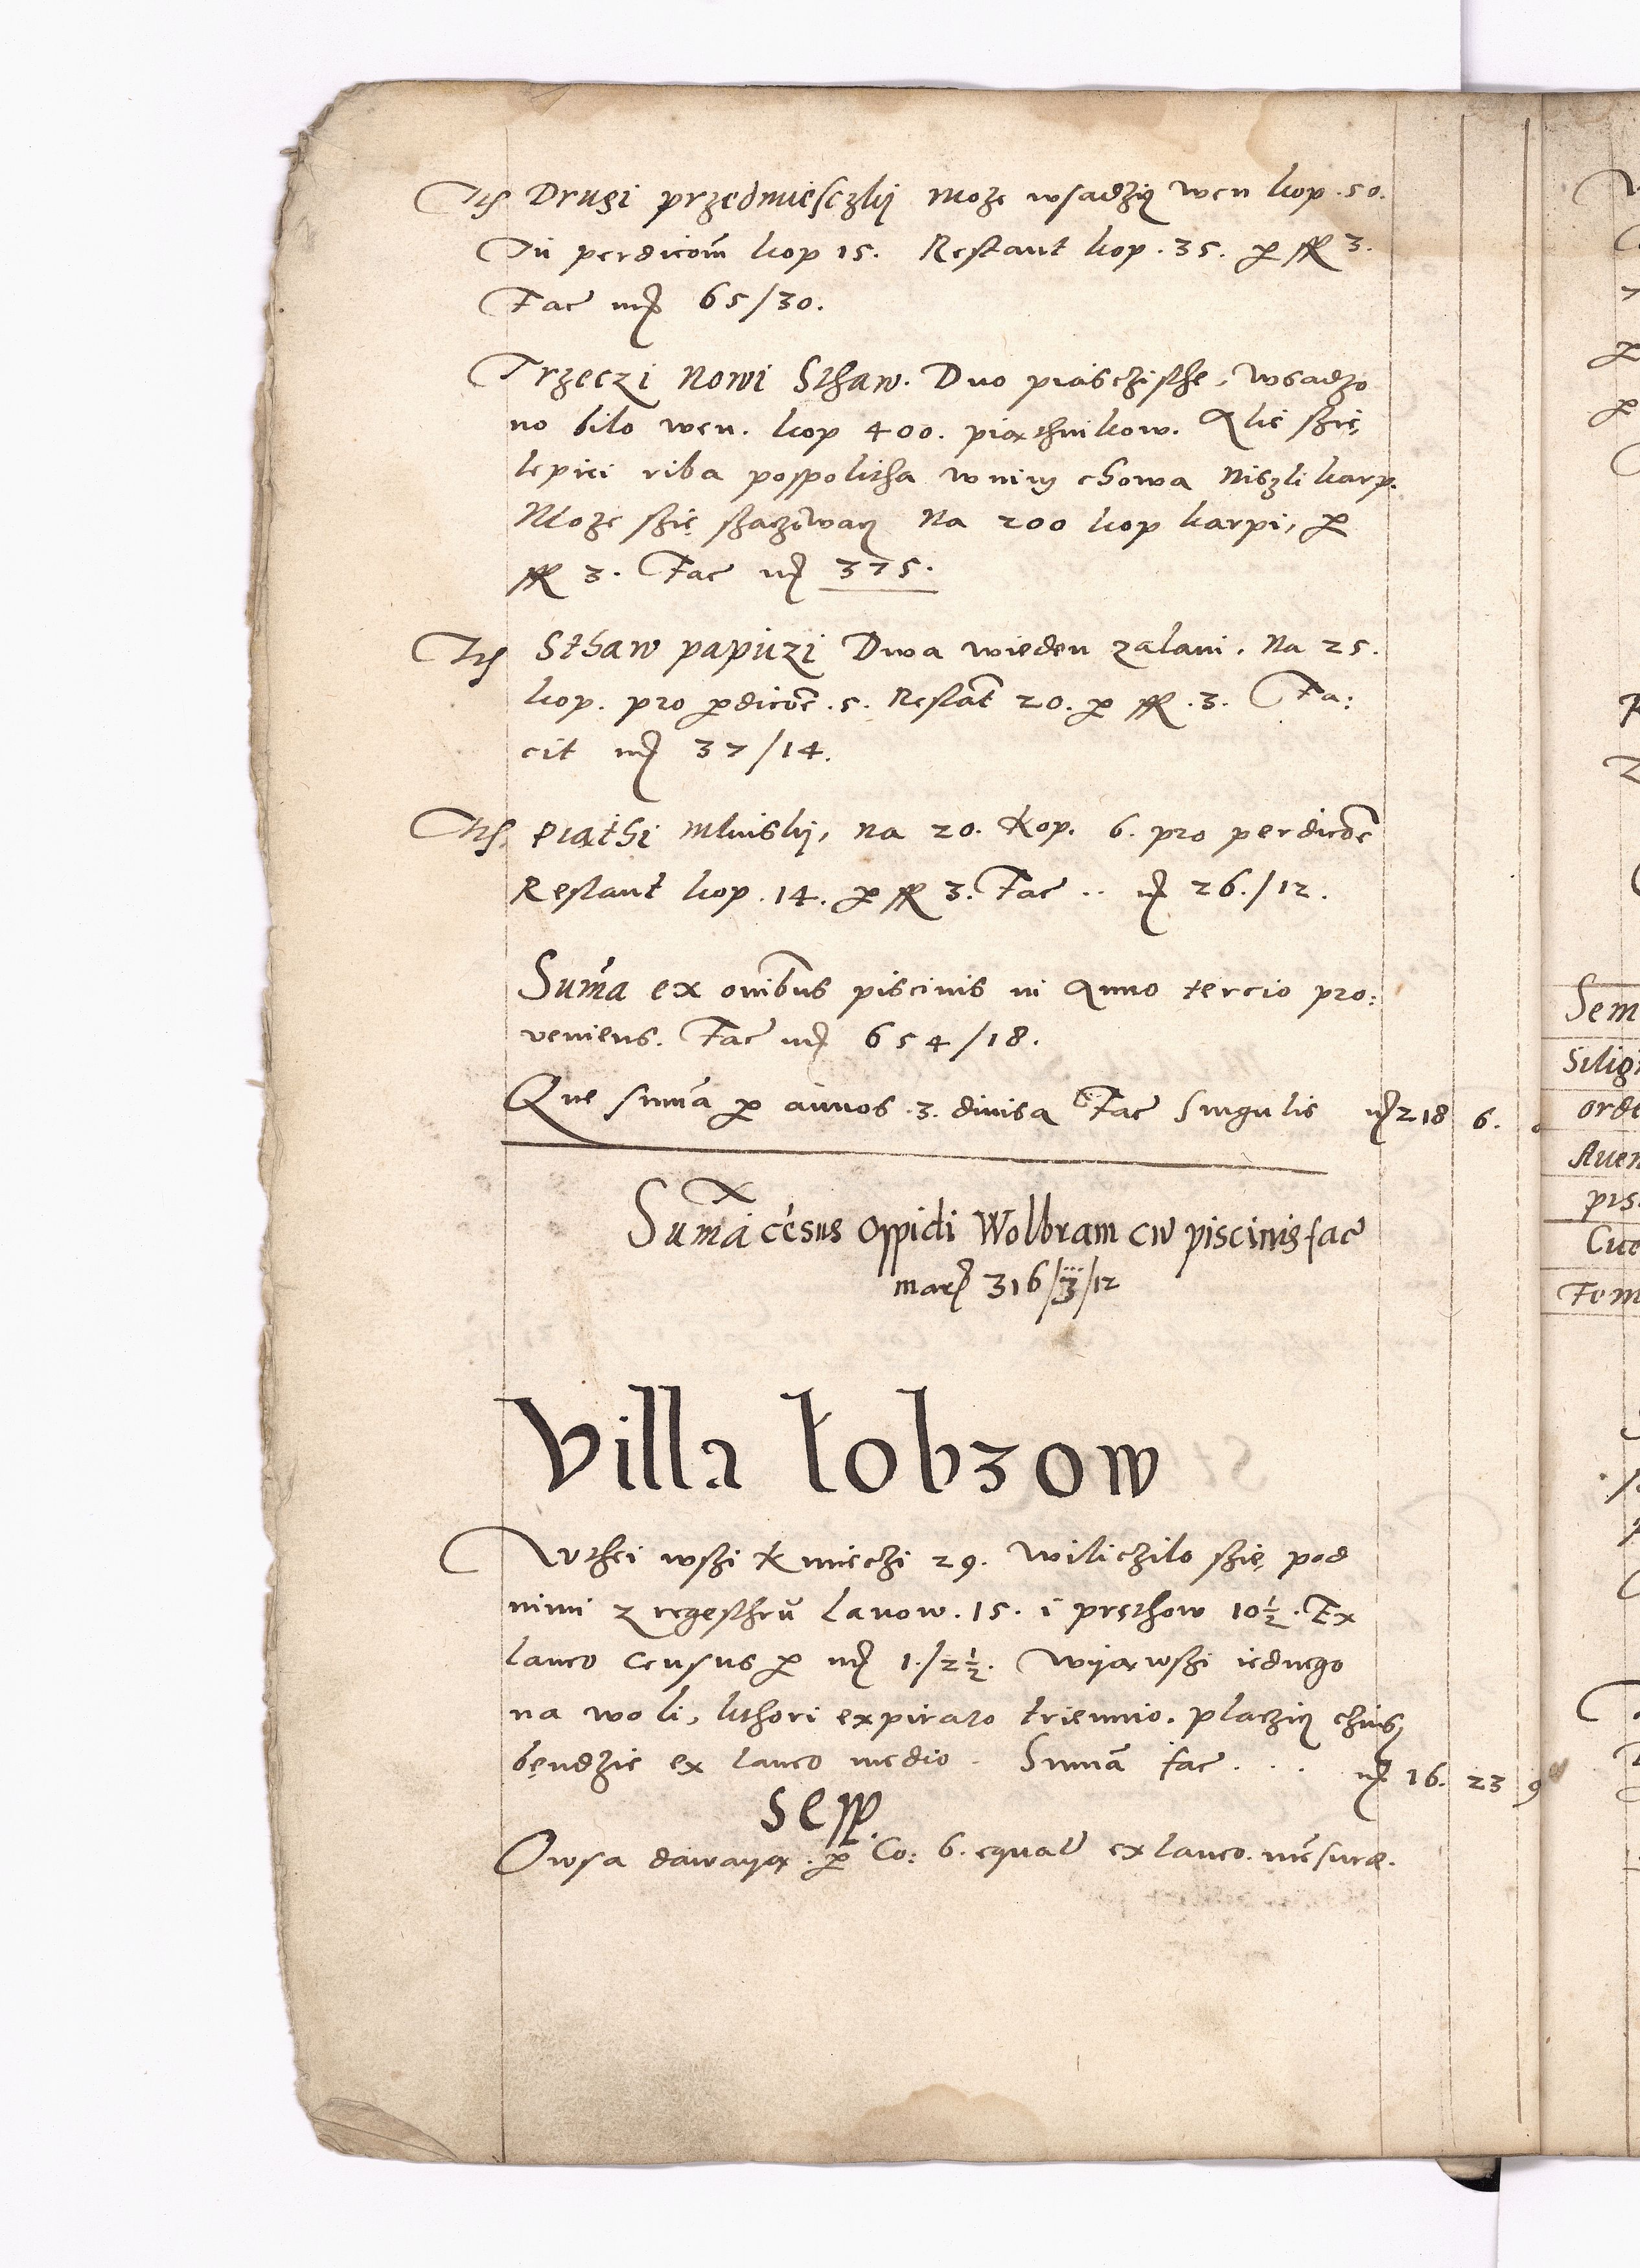 Drugi przedmiesczky może wsadzicz wen kop. 50.
In perdicom kop 15. Restant kop. 35. per fl 3.
Fac mr 65/30.
Trzeczi Nowi Sthaw. Dno piasczisthe, wsadzo
no bilo wen. kop 400. piąthnikow. Alie szię
lepiei riba pospolitha wnim chowa niszli karp.
Może szię szaczowacz Na 200 kop karpi, per
fl 3. Fac mr 375.
Sthaw papiizi Dwa wieden zalani. Na 25.
kop. pro perdicoe. 5. Restat 20. per fl. 3. Fa:
cit mr 37/14.
Piąthi Mlinsky, na 20. Kop. 6. pro perdicoe
Restant kop. 14. per fl 3. Fac .. mr 26./12.
Suma ex omibus piscinis in Anno tercio pro:
veniens. Fac mr 654/18.
Que suma per annos .3. divisa Fac singulis mr 218 6.
Suma cesus Oppidi Wolbram cu piscinis fac
mar 316/3/12
Villa Łobzow
Wthei wszi Kmieczi 29. Wiliczilo szię pod
nimi z regesthru Lanow. 15. i pręthow 10½. Ex
laneo census per mr 1./2½. Wyiąwszi iednego
na woli, kthori expirato triennio. placzicz chins
bendzie ex laneo medio. Suma fac . . . mr 16. 23 9
Sepp.
Owsa dawayą. per Co: 6. equal ex laneo. mesuræ.
Sem
Silig
orde
Aven
pis